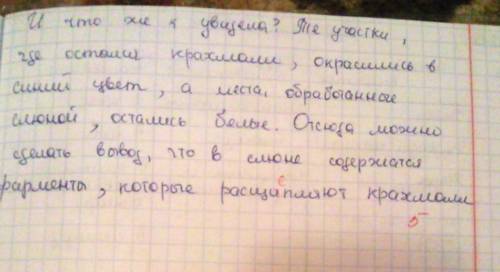 И что же я увидела? Те участки,
где остались крахмали, окрасились в
синий цвет, а места, обработанные
слюной, остались белые. Отсюда можно
сделать вывод, что в слюне содержатся
фарменты, которые расщапляют крахмали
е
5